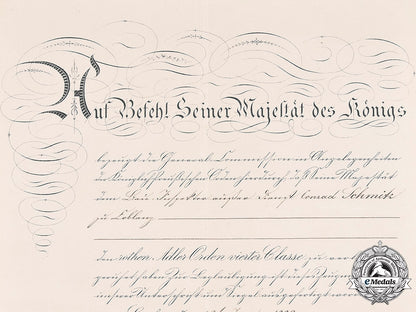 Auf Befehl Seiner Majestät des Königs
bezeugt die General-Commission in Angelegenheiten
der Königlich Preußischen Orden hierdurch, daß Seine Majestät
dem Bau-Inspektor Ernst Conrad Schmitz
zu Coblenz
den rothen Adler Orden vierter Classe zu
geruht haben. Zur Beglaubigung ist dieses Zeugniß
unserer Unterschrift und Siegel ausgefertigt worden
eMedals